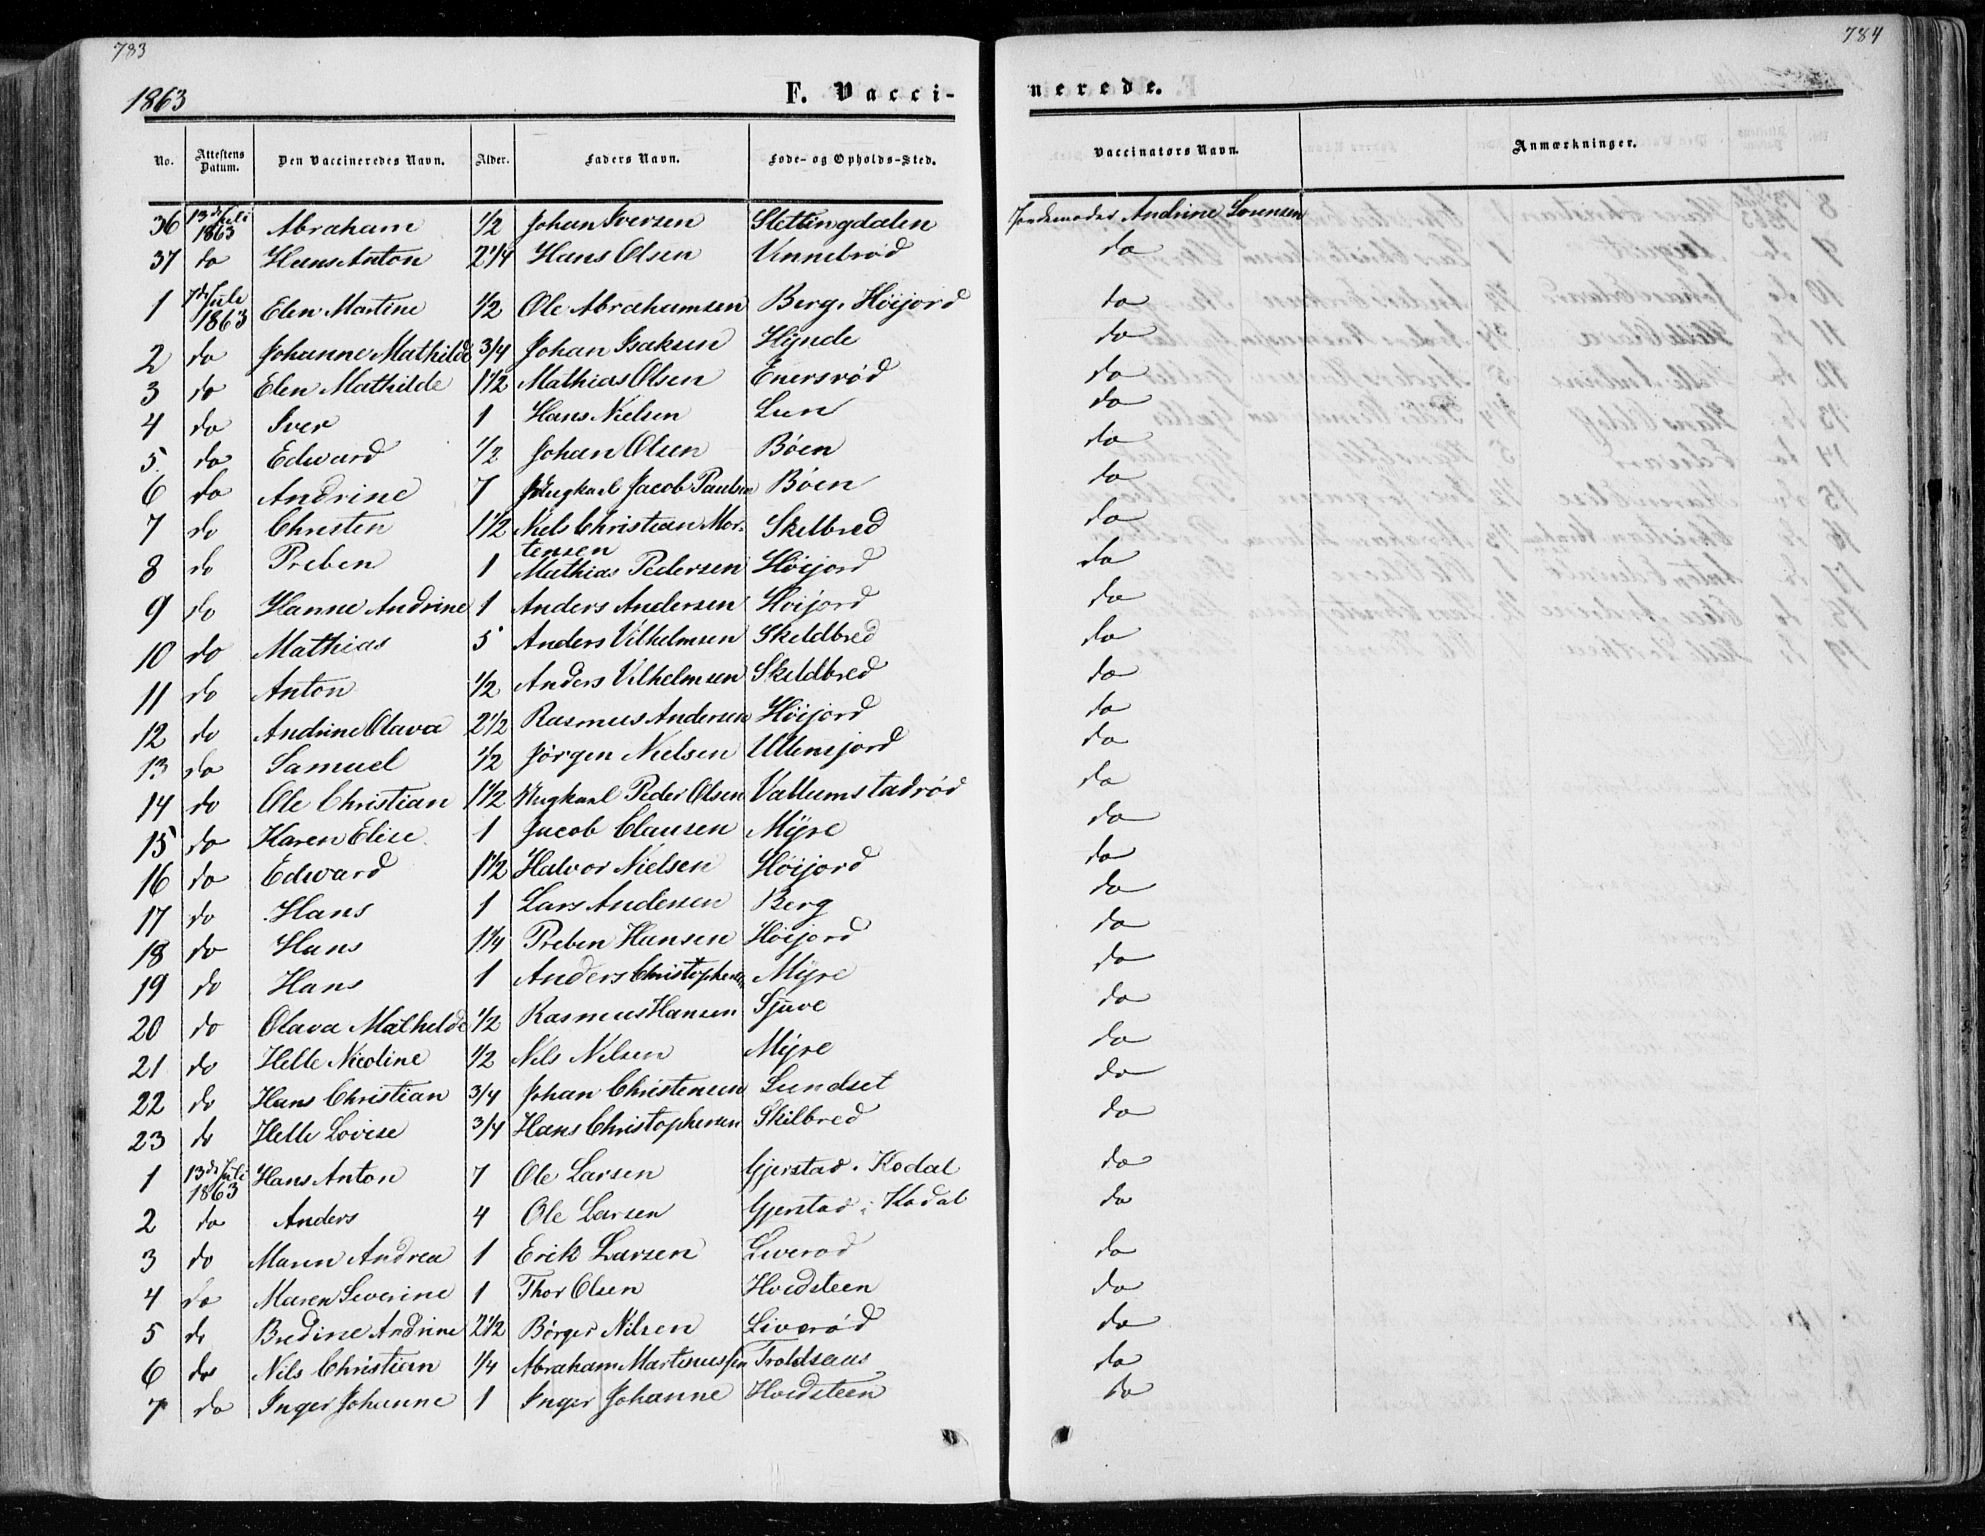 783
784
1863
F. Vacci-
nerede.
No. Attestens Datum. Den Vaccineredes Navn. Alder. Faders Navn. Føde- og Opholds-Sted. Vaccinators Navn. Anmærkninger.
36 13de Juli 1863 Abraham 1/2 Johan Iversen Slettingdalen Jordemoder Andrine Sørensen
37 do Hans Anton 2 1/4 Hans Olsen Vennerød do
1 7de Juli 1863 Elen Martine 1/2 Ole Abrahamsen Berg i Høijord do
2 do Johanne Mathilde 3/4 Johan Isaksen Hynde do
3 do Elen Mathilde 1 1/2 Mathias Olsen Enersrød do
4 do Iver 1 Hans Nielsen Lun do
5. do Edward 1/2 Johan Olsen Bøen do
6 do Andrine 7 Ungkarl Jacob Paulsen Bøen do
7 do Christen 1 1/2 Niels Christian Mor-
tensen Skelbred do
8 do Preben 1 Mathias Pedersen Høijord do
9 do Hanne Andrine 1 Anders Andersen Høijord do
10 do Mathias 5 Anders Vilhelmsen Skeldbred do
11 do Anton 1/2 Anders Vilhelmsen Skeldbred do
12 do Andrine Olava 2 1/2 Rasmus Andersen Høijord do
13 do Samuel 1/2 Jørgen Nielsen do
14 do Ole Christian 1 1/2 Ungkarl Peder Olsen Vallumstadrød do
15 do Karen Elise 1 Jacob Clausen Mÿre do
16 do Edward 1 1/2 Halvor Nielsen Høijord do
17 do Hans 1 Lars Andersen Berg do
18 do Hans 1 1/4 Preben Hansen Høijord do
19 do Hans 1 Anders Christophersen Mÿre do
20 do Olava Mathilde 1/2 Rasmus Hansen Sjuve do
21 do Helle Nicoline 1/2 Nils Nilsen Mÿre do
22 do Hans Christian 3/4 Johan Christensen Lundset do
23 do Helle Lovise 3/4 Hans Christophersen Skilbred do
1 13de Juli 1863 Hans Anton 7 Ole Larsen Gjerstad i Kodal do
2 do Anders 4 Ole Larsen Gjerstad i Kodal do
3 do Maren Andrea 1 Erik Larsen Liverød do
4 do Maren Severine 1 Thor Olsen Hvidsteen do
5 do Bredine Andrine 2 1/2 Børger Nilsen Liverød do
6 do Nils Christian 1/4 Abraham Martinussen Troldsaas do
7 do Inger Johanne 1 Inger Johanne Hvidsteen do